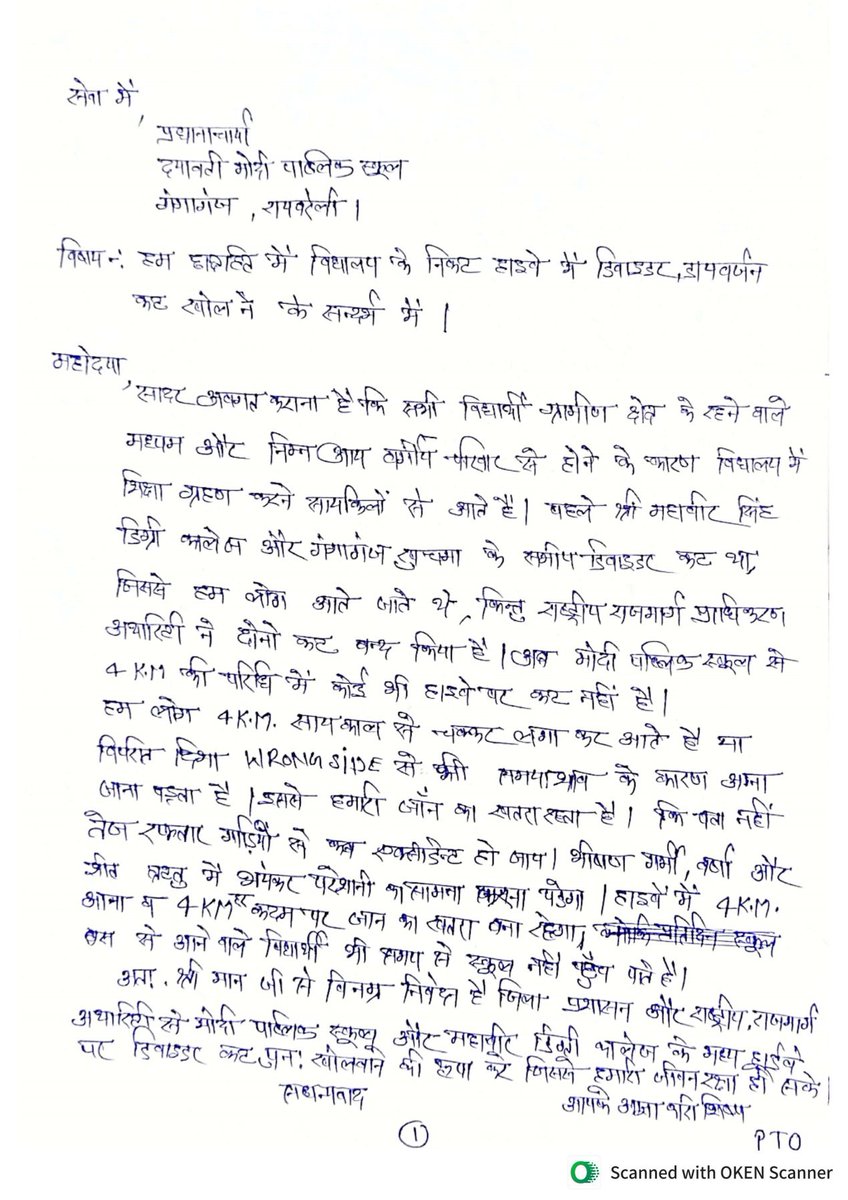 सेवा में,
प्रधानाचार्या
दयावती मोदी पब्लिक स्कूल
गंगागंज, रायबरेली।
विषय न: हम छात्रहित में विद्यालय के निकट हाइवे में डिवाइडर, डायवर्जन
कट खोलने के सन्दर्भ में।
महोदया,
सादर अवगत कराना है कि सभी विद्यार्थी ग्रामीण क्षेत्र के रहने वाले
मध्यम और निम्न आय वर्गीय परिवार से होने के कारण विद्यालय में
शिक्षा ग्रहण करने सायकिलों से आते है। पहले श्री महावीर सिंह
डिग्री कालेज और गंगागंज के समीप डिवाइडर कट था,
जिससे हम लोग आते जाते थे, किन्तु राष्ट्रीय राजमार्ग प्राधिकरण
अथारिटी ने दोनो कट बन्द किया है। अब मोदी पब्लिक स्कूल से
4 K.M की परिधि में कोई भी हाइवे पर कट नहीं है।
हम लोग 4 K.M. सायकाल से चक्कर लगा कर आते है या
विपरित दिशा WRONG SIDE से भी समयाभाव के कारण आना
जाना पड़ता है। इससे हमारी जॉन का खतरा रहता है। कि पता नहीं
तेज रफतार गाड़ियों से कब एक्सीडेन्ट हो जाय। भीषण गर्मी, वर्षा और
शीत ऋतु में भयंकर परेशानी का सामना करना पडेगा। हाइवे में 4 K.M.
आना व 4 KM कदम पर जान का खतरा बना रहेगा,
बस से आने वाले विद्यार्थी भी समय से स्कूल नही पहुँच पाते है।
अतः श्री मान जी से विनम्र निवेदन है जिला प्रशासन और राष्ट्रीय, राजमार्ग
अथारिटी से मोदी पब्लिक स्कूल और महावीर डिग्री कालेज के मध्य हाईवे
पर डिवाइडर कट पुन: खोलवाने की कृपा करें जिससे हमारी जीवन रक्षा हो सके।
सधन्यवाद
आपके आज्ञा कारी शिष्य
1
PTO
Scanned with OKEN Scanner